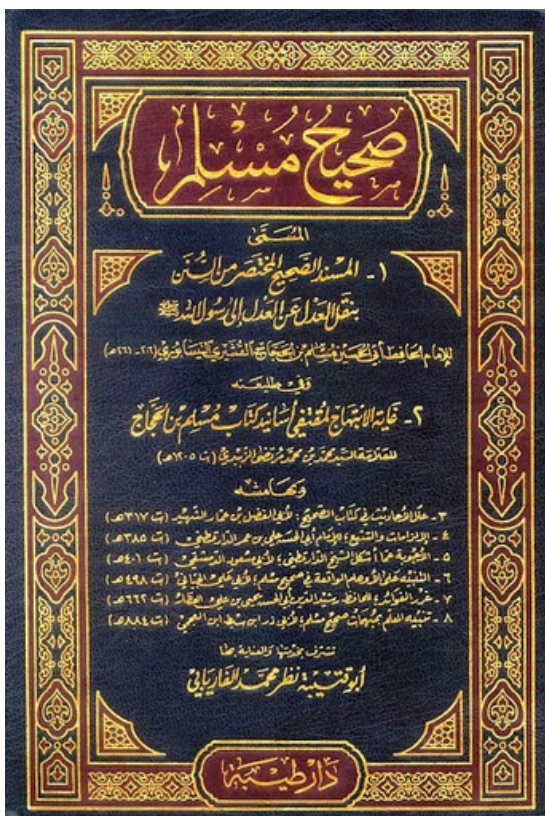 صحيح مسلم
المسمى
١ - المسند الصحيح المختصر من السنن
بنقل العدل عن العدل إلى رسول الله ﷺ
للإمام الحافظ أبي الحسين مسلم بن الحجاج القشيري النيسابوري (٢٠٦ - ٢٦١هـ)
وفي طليعته
٢ - غاية الابتهاج لمقتفي أسانيد كتاب مسلم بن الحجاج
للعلامة السيد محمد بن محمد مرتضى الزبيدي (ت ١٢٠٥هـ)
وبهامشه
٣ - علل الأحاديث في كتاب الصحيح: لأبي الفضل بن عمار الشهيد (ت ٣١٧هـ)
٤ - الإلزامات والتتبع؛ للإمام أبي الحسن علي بن عمر الدارقطني (ت ٣٨٥هـ)
٥ - الأجوبة عما أشكل الشيخ الدارقطني؛ لأبي مسعود الدمشقي (ت ٤٠١هـ)
٦ - التنبيه على الأوهام الواقعة في صحيح مسلم؛ لأبي علي الجياني (ت ٤٩٨هـ)
٧ - غرر الفوائد؛ للحافظ رشيد الدين أبي الحسين يحيى بن علي العطار (ت ٦٦٢هـ)
٨ - تنبيه المعلم بمبهمات صحيح مسلم؛ لأبي ذر ابن سبط ابن العجمي (ت ٨٨٤هـ)
تشرف بخدمتها والعناية بها
أبو قتيبة نظر محمد الفاريابي
دار طيبة